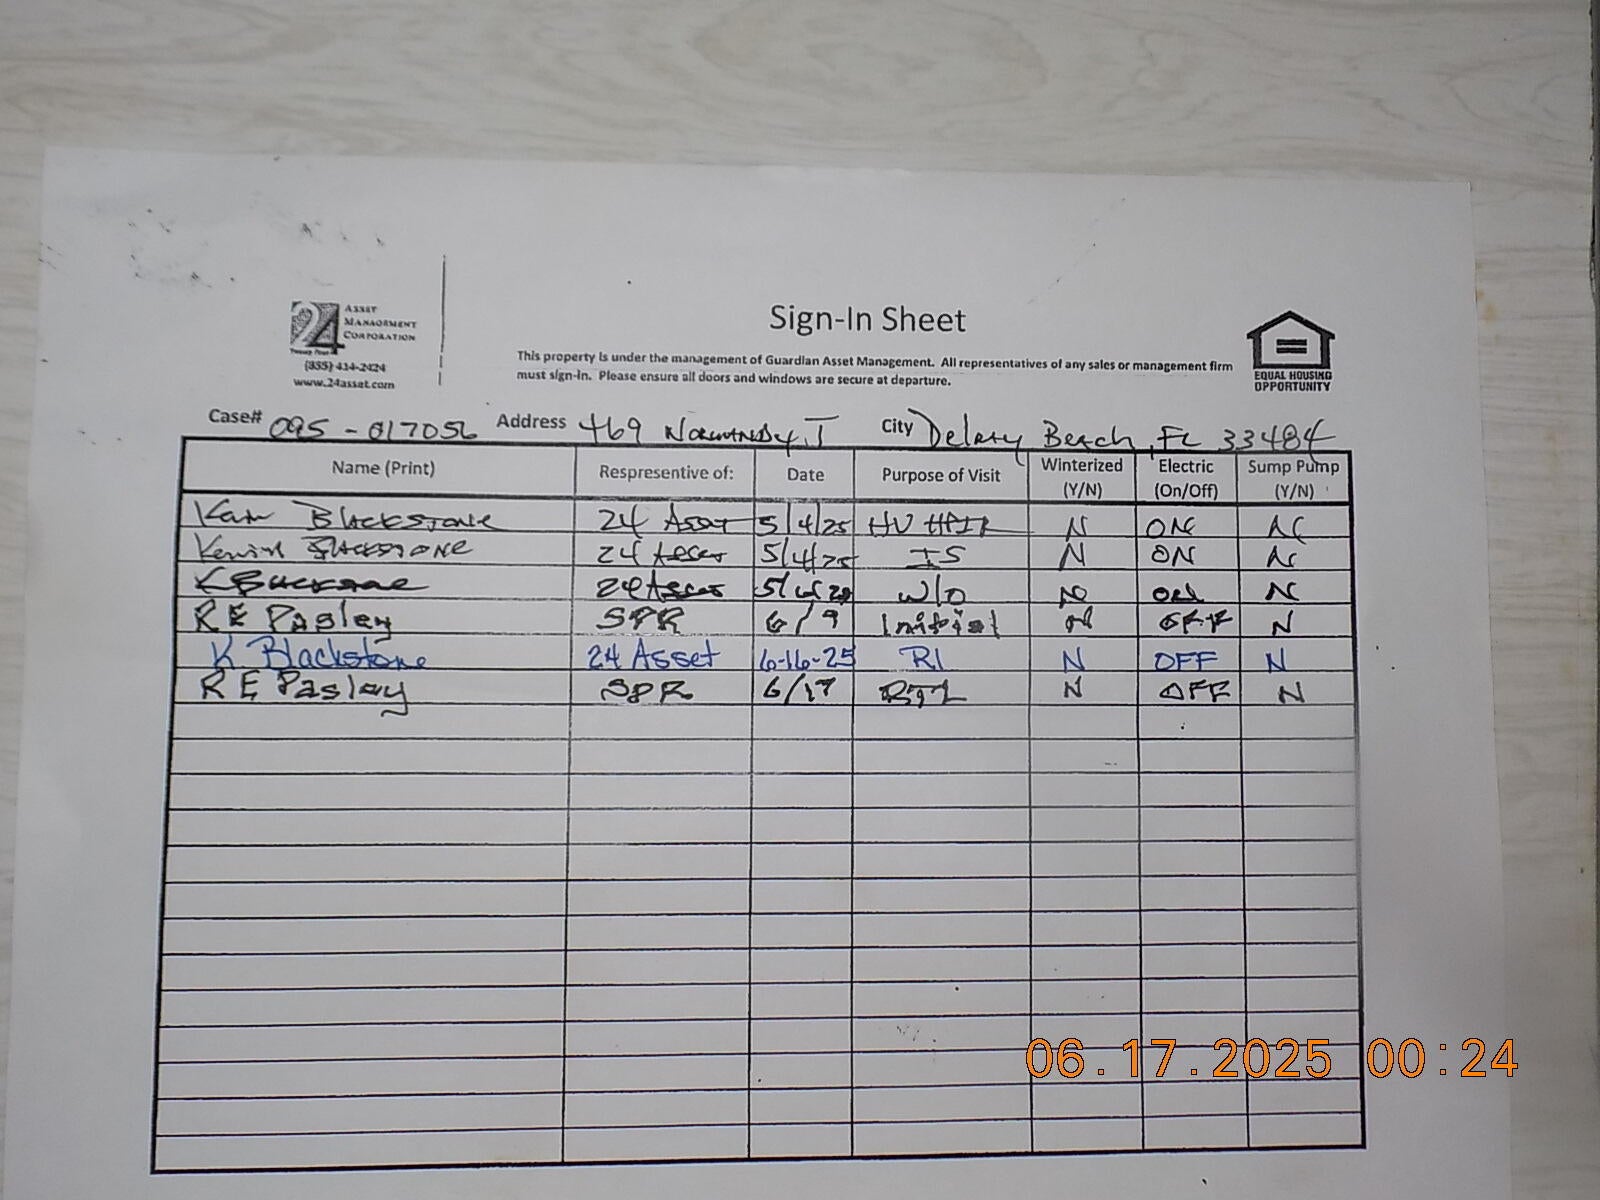 24 ASSET
MANAGEMENT
CORPORATION
Twenty Four
(855) 414-2424
www.24asset.com
Sign-In Sheet
This property is under the management of Guardian Asset Management. All representatives of any sales or management firm
must sign-in. Please ensure all doors and windows are secure at departure.
EQUAL HOUSING
OPPORTUNITY
Case# 095-017056 Address 469 Normandy J City Delray Beach, FL 33484
Name (Print) Respresentive of: Date Purpose of Visit Winterized (Y/N) Electric (On/Off) Sump Pump (Y/N)
Blackstone 24 Asset 5/4/25 N ON N
Kevin Blackstone 24 Asset 5/4/25 IS N ON N
K Blackstone 24 Asset W/O NO ON N
R E Pasley SPR 6/9 Initial N OFF N
K Blackstone 24 Asset 6-16-25 RI N OFF N
R E Pasley SPR 6/17 N OFF N
06.17.2025 00:24